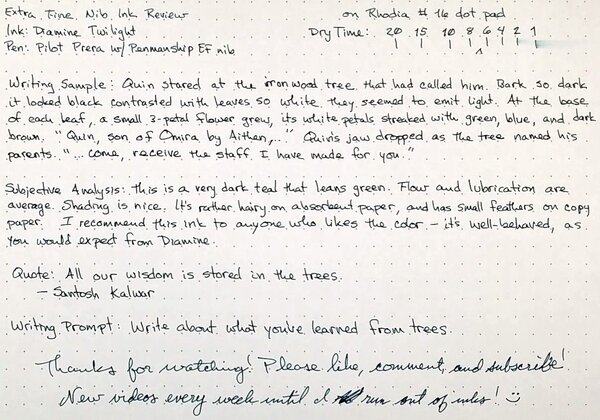 Extra Fine Nib Ink Review on Rhodia #16 dot pad
Ink: Diamine Twilight Dry Time: 20 15 10 8 6 4 2 1
Pen: Pilot Prera w/ Penmanship EF nib
Writing Sample: Quin stared at the ironwood tree that had called him. Bark so dark
it looked black contrasted with leaves so white they seemed to emit light. At the base
of each leaf, a small 3-petal flower grew, its white petals streaked with green, blue, and dark
brown. "Quin, son of Omira by Aithen,..." Quin's jaw dropped as the tree named his
parents. "...come, receive the staff I have made for you."
Subjective Analysis: this is a very dark teal that leans green. Flow and lubrication are
average. Shading is nice. It's rather hairy on absorbent paper, and has small feathers on copy
paper. I recommend this ink to anyone who likes the color - it's well-behaved, as
you would expect from Diamine.
Quote: All our wisdom is stored in the trees.
- Santosh Kalwar
Writing Prompt: Write about what you've learned from trees.
Thanks for watching! Please like, comment, and subscribe!
New videos every week until I run out of inks! :)